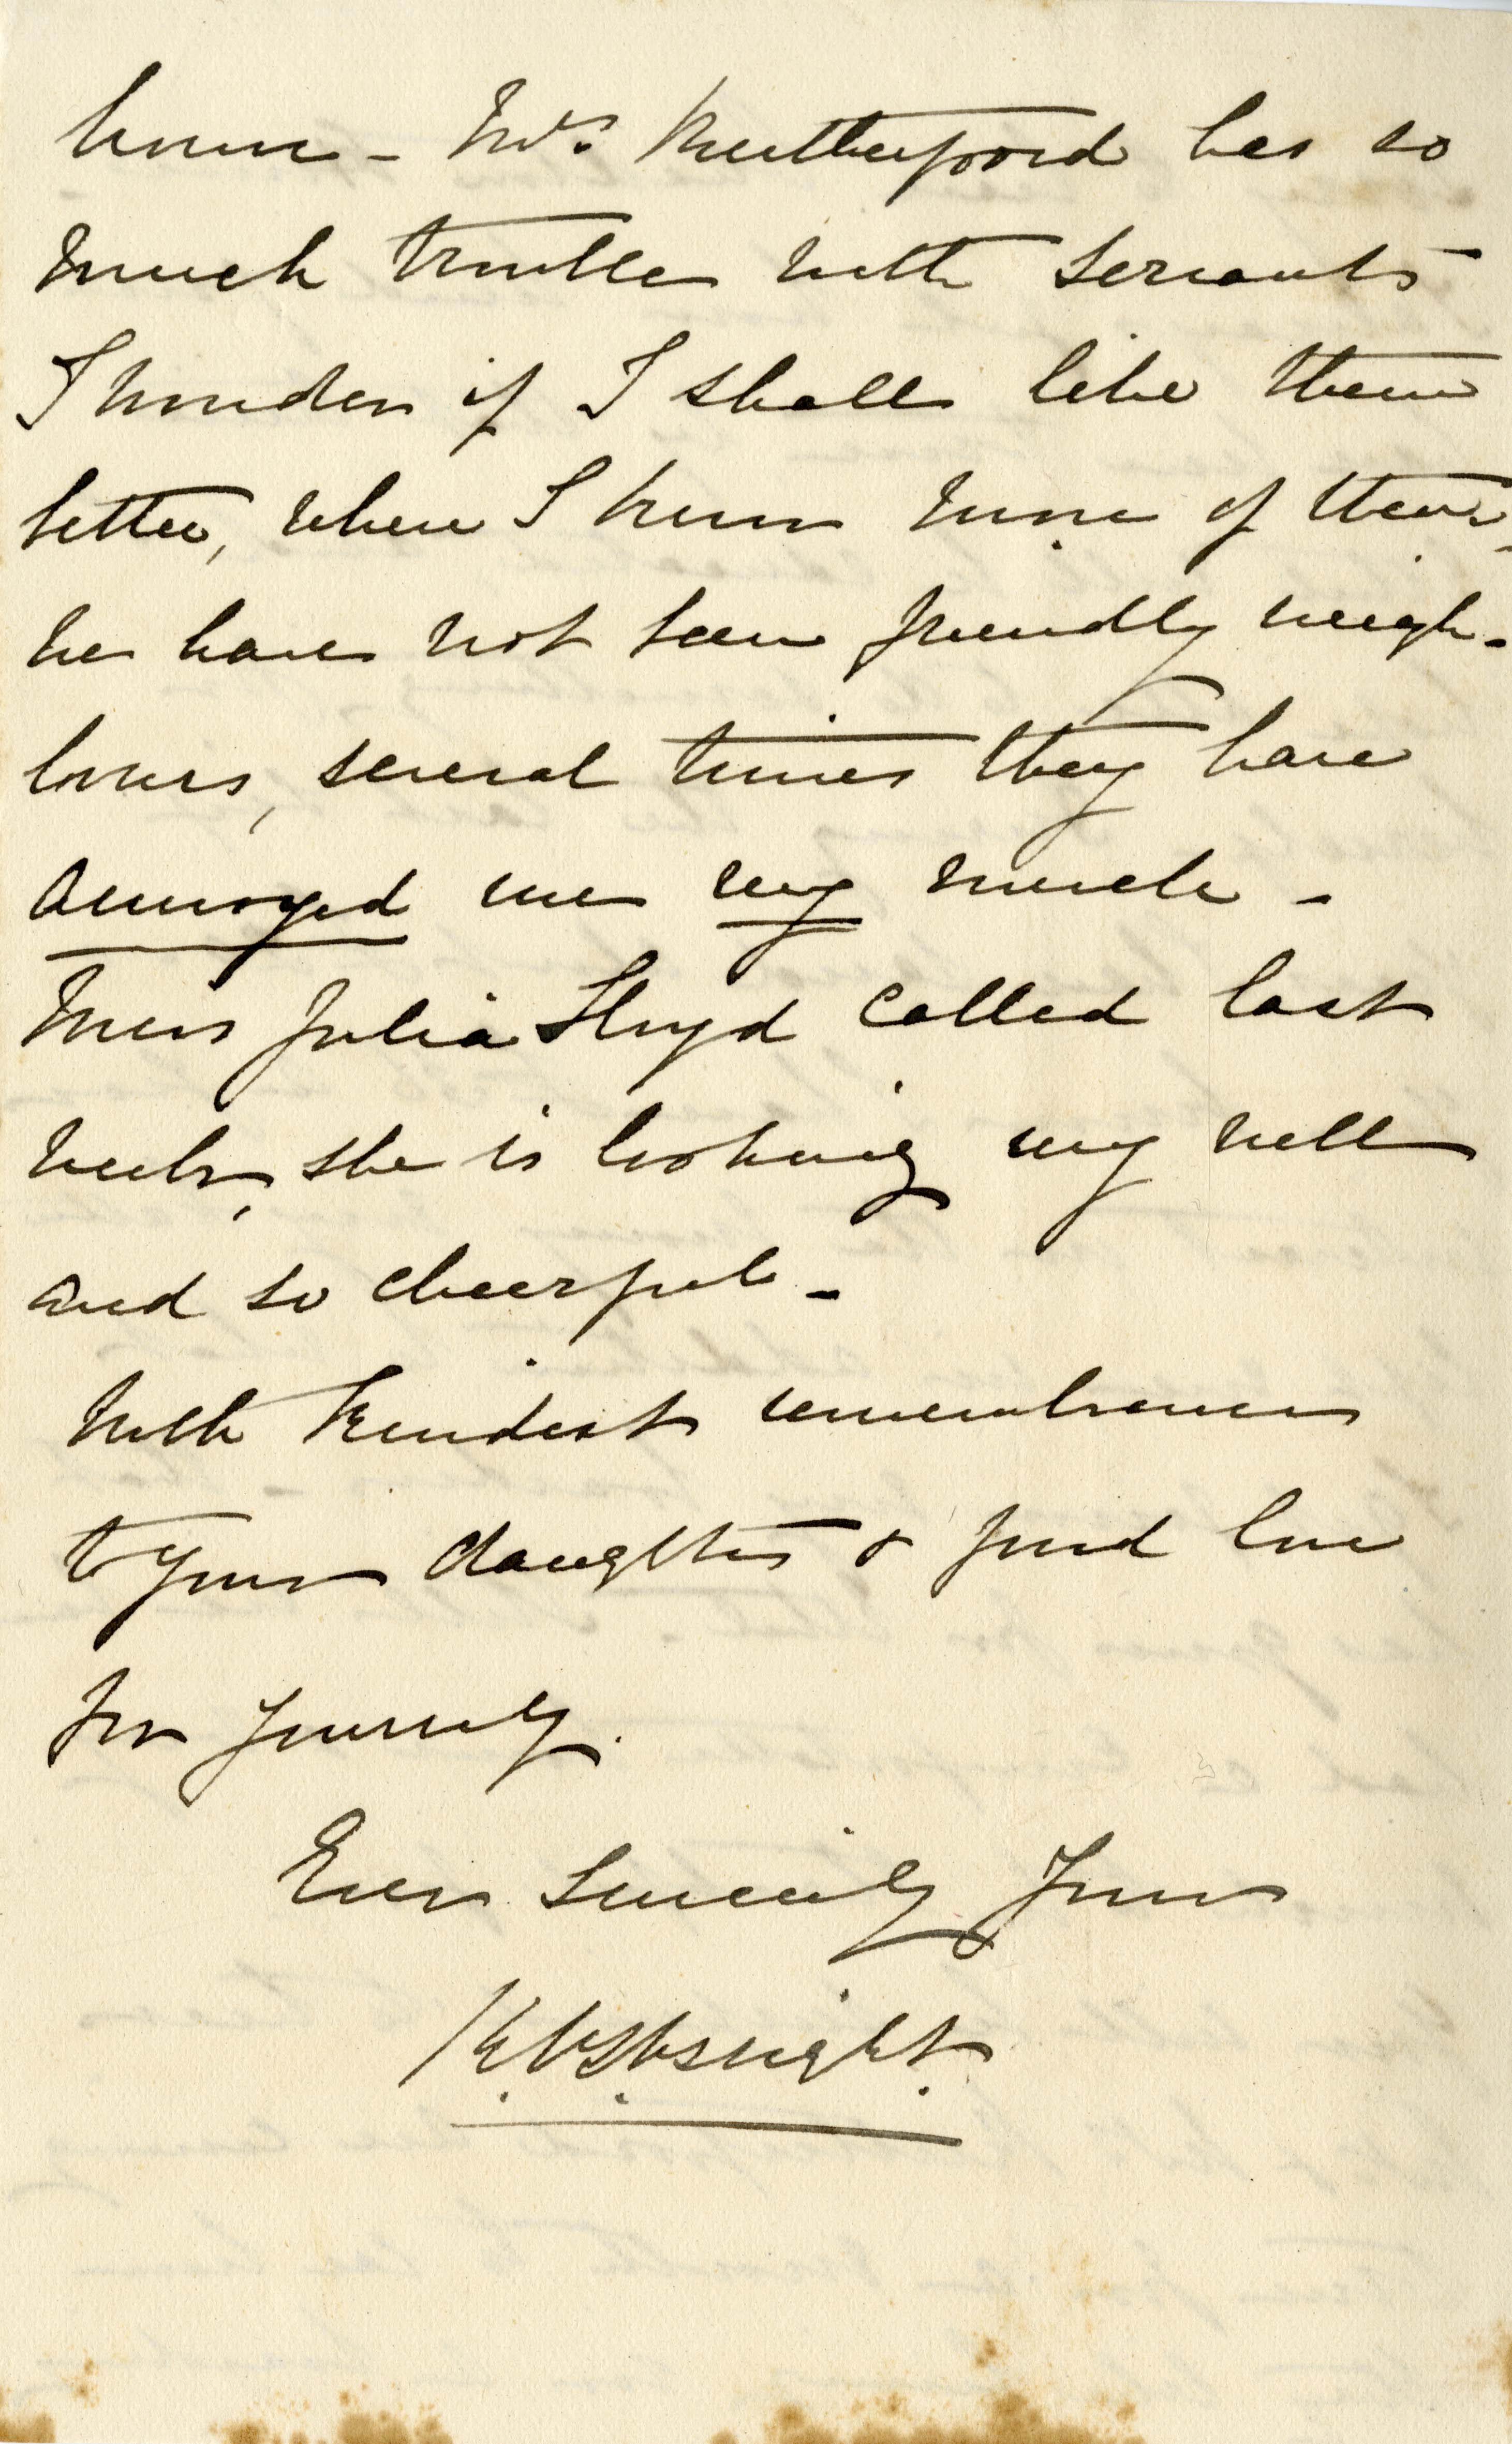 home - Mrs Rutherfoord has so
much trouble with servants
I wonder if I shall like them
better, when I know more of them -
We have not been friendly neigh-
bours, several times they have
annoyed me very much -
Miss Julia Lloyd called last
week, she is looking very well
and so cheerful -
With kindest remembrances
to your daughters & fond love
for yourself.
Ever Sincerely Yours